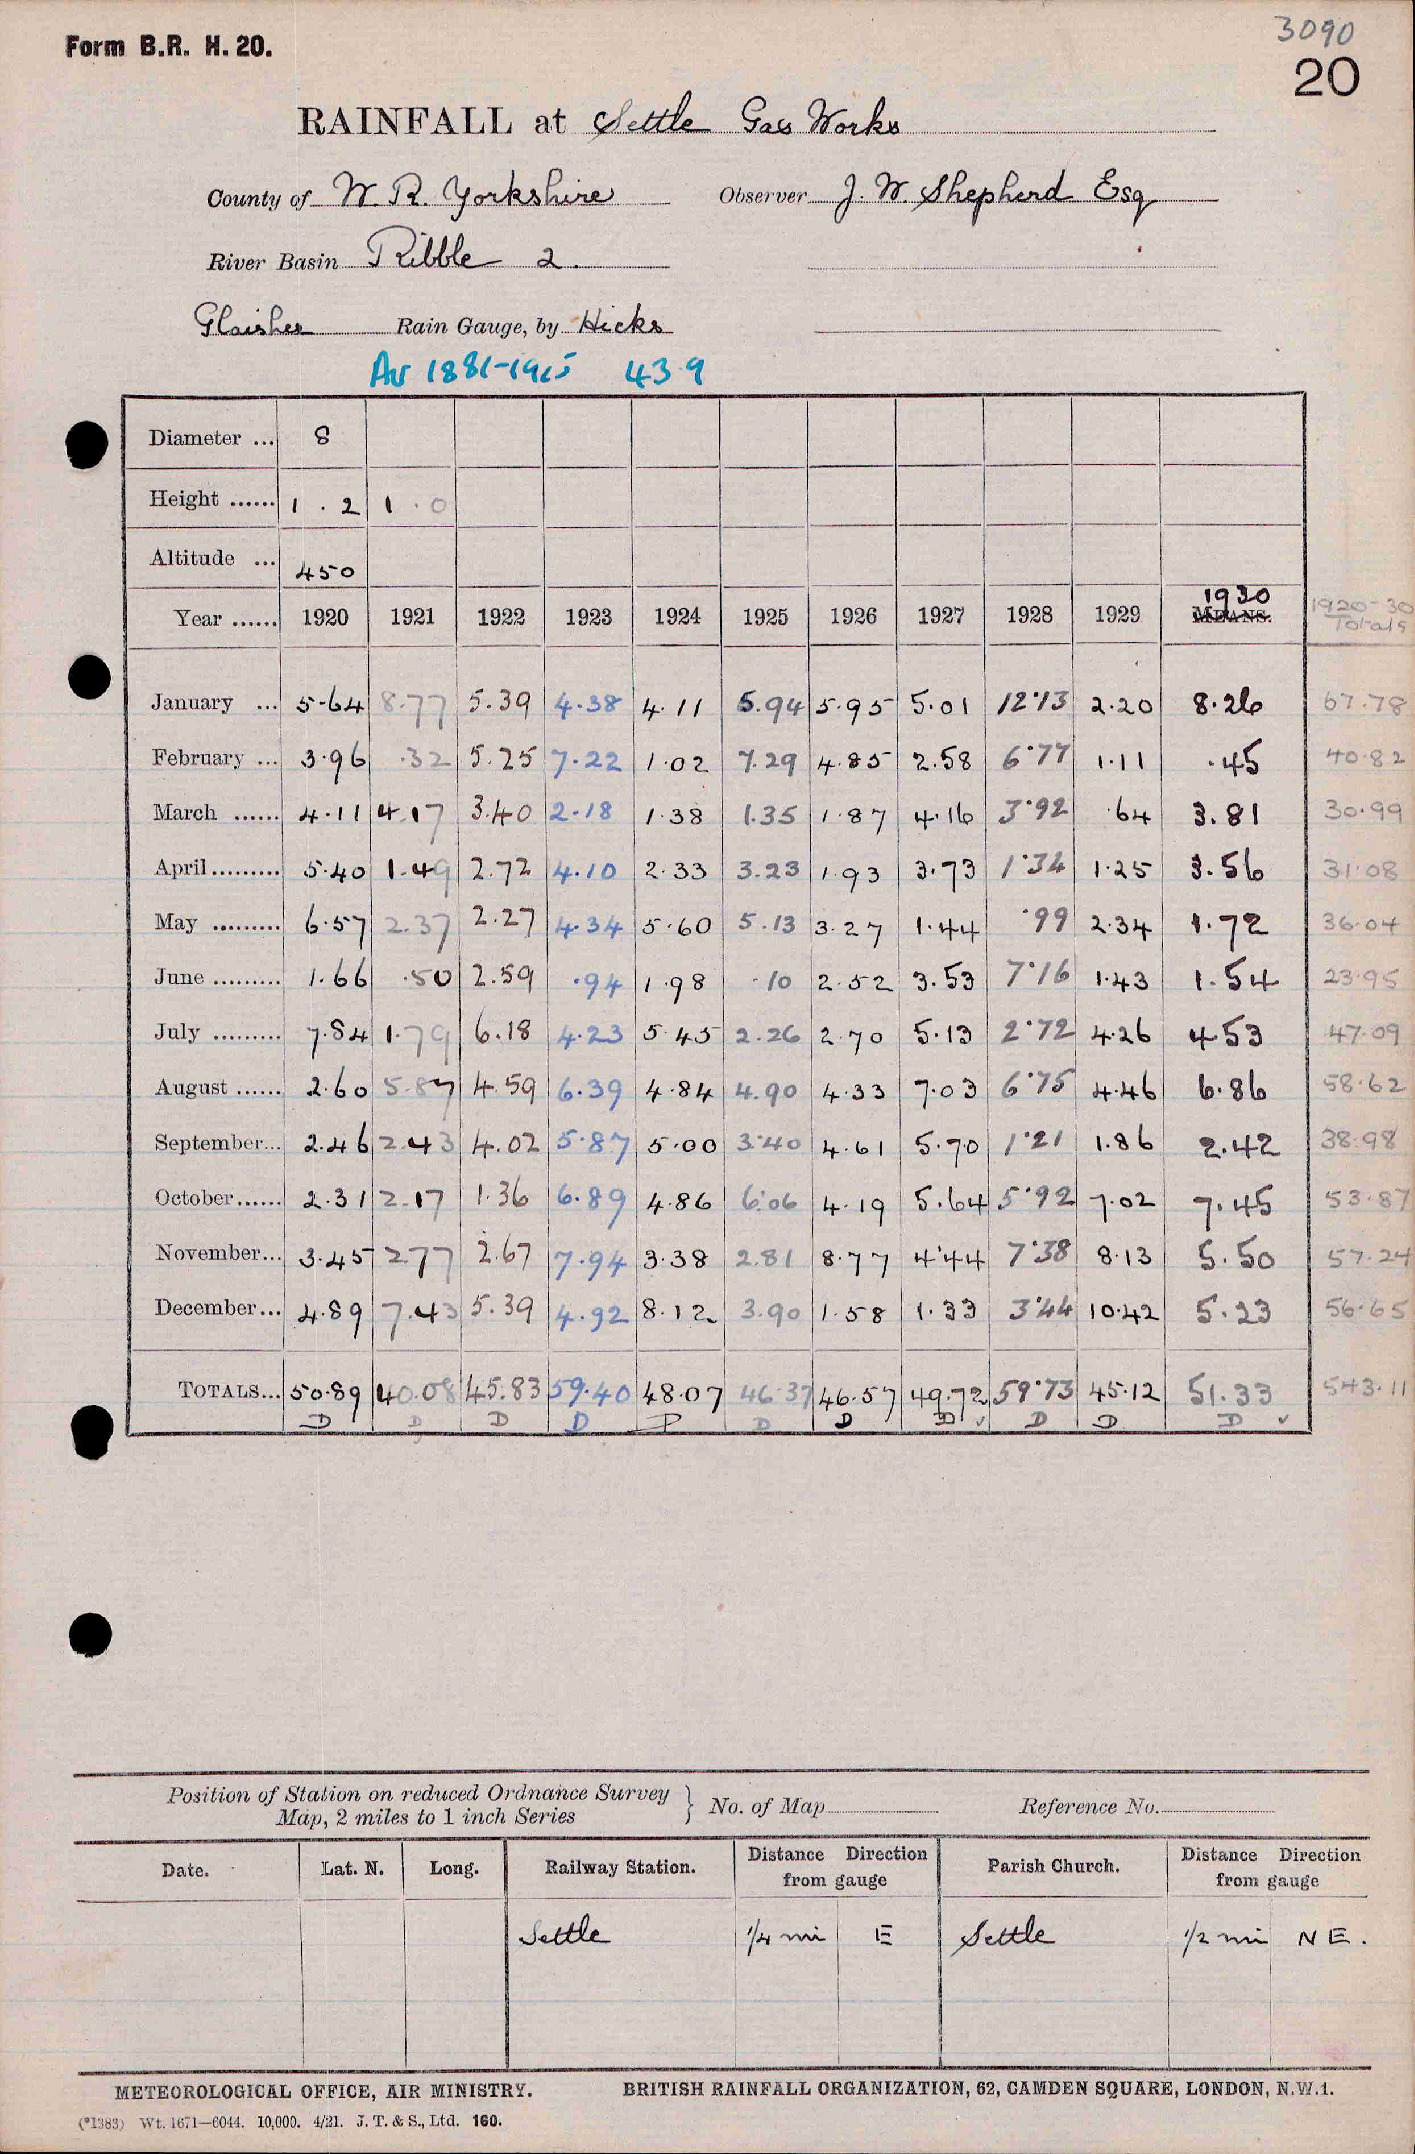 3090
Form B.R. H. 20.
20
RAINFALL at Settle Gas Works
County of W. R. Yorkshire Observer J. W. Shepherd Esq
River Basin Ribble 2.
Glaisher Rain Gauge, by Hicks
Av 1881-1915 43.9
Diameter ... 8
Height ...... 1 . 2 1 . 0
Altitude ... 450
Year ...... 1920 1921 1922 1923 1924 1925 1926 1927 1928 1929 MEANS. 1930 1920-30 Totals
January ... 5.64 8.77 5.39 4.38 4.11 5.94 5.95 5.01 12.13 2.20 8.26 67.78
February ... 3.96 .32 5.25 7.22 1.02 7.29 4.85 2.58 6.77 1.11 .45 40.82
March ...... 4.11 4.17 3.40 2.18 1.38 1.35 1.87 4.16 3.92 .64 3.81 30.99
April......... 5.40 1.49 2.72 4.10 2.33 3.23 1.93 3.73 1.34 1.25 3.56 31.08
May ......... 6.57 2.37 2.27 4.34 5.60 5.13 3.27 1.44 .99 2.34 1.72 36.04
June ......... 1.66 .50 2.59 .94 1.98 .10 2.52 3.53 7.16 1.43 1.54 23.95
July ......... 7.84 1.79 6.18 4.23 5.45 2.26 2.70 5.13 2.72 4.26 4.53 47.09
August ...... 2.60 5.87 4.59 6.39 4.84 4.90 4.33 7.03 6.75 4.46 6.86 58.62
September... 2.46 2.43 4.02 5.87 5.00 3.40 4.61 5.70 1.21 1.86 2.42 38.98
October...... 2.31 2.17 1.36 6.89 4.86 6.06 4.19 5.64 5.92 7.02 7.45 53.87
November... 3.45 2.77 2.67 7.94 3.38 2.81 8.77 4.44 7.38 8.13 5.50 57.24
December... 4.89 7.43 5.39 4.92 8.12 3.90 1.58 1.33 3.44 10.42 5.23 56.65
TOTALS... 50.89 40.08 45.83 59.40 48.07 46.37 46.57 49.72 59.73 45.12 51.33 543.11
D D D D D D D D ✓ D D D ✓
Position of Station on reduced Ordnance Survey
Map, 2 miles to 1 inch Series } No. of Map Reference No.
Date. Lat. N. Long. Railway Station. Distance Direction from gauge Parish Church. Distance Direction from gauge
Settle 1/4 mi E Settle 1/2 mi NE.
METEOROLOGICAL OFFICE, AIR MINISTRY. BRITISH RAINFALL ORGANIZATION, 62, CAMDEN SQUARE, LONDON, N.W.1.
(*1383) Wt. 1671—6044. 10,000. 4/21. J. T. & S., Ltd. 160.